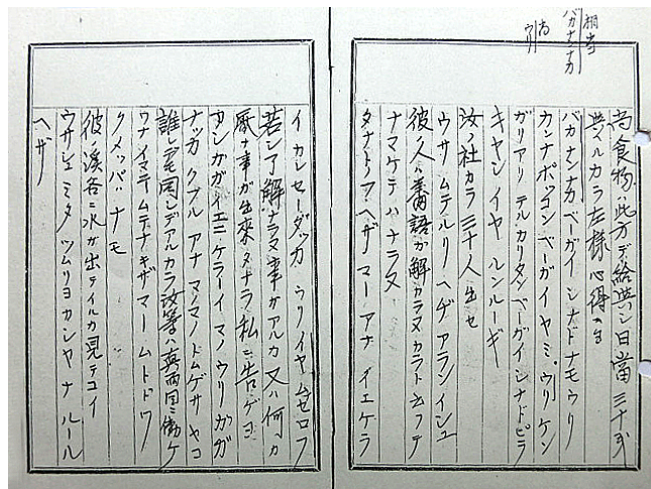 相当
バカナンナカ
ウリ
尚食物ハ此方デ給與シ日當三十せん
與ヘルカラ左様心得ヨ
バカナンナカ ベーガイ シナドナモ ウリ
カンナ ポッゴン ベーガイ ヤミ、ウリケン
ガリアリ テル カリタン ベーガイ シナドピラ
キヤシ イヤ ルンルーギ
汝ノ社カラ三十人出セ
ウサ ムテルリ ヘヂ アラン イシユ
彼ノ人ハ蕃語ガ解カラヌカラト云ツテ
ナマケテハナラヌ
タナトフ ヘザ マー アナ ダイエケラ
イカレセーダッカ ウリノイヤ ムゼロフ
若シ了解ナラヌ事ガアルカ又ハ何カ
厭ナ事ガ出來タナラ私ニ告ゲヨ
カンガガイエニ ケラーイ マノ ウリガガ
ナッガ クブル アナ マノマノ ドムゲサ ヤコ
誰レデモ同ジデアルカラ汝等ハ真面目ニ働ケ
ワナ イマテ ムテナ キザ マー ムトドワ
クメッパハナモ
彼ノ溪谷ニ水ガ出テイルカ見テコイ
ウサシエ ミタ ツムリヨカンヤナ ルール
ヘザ